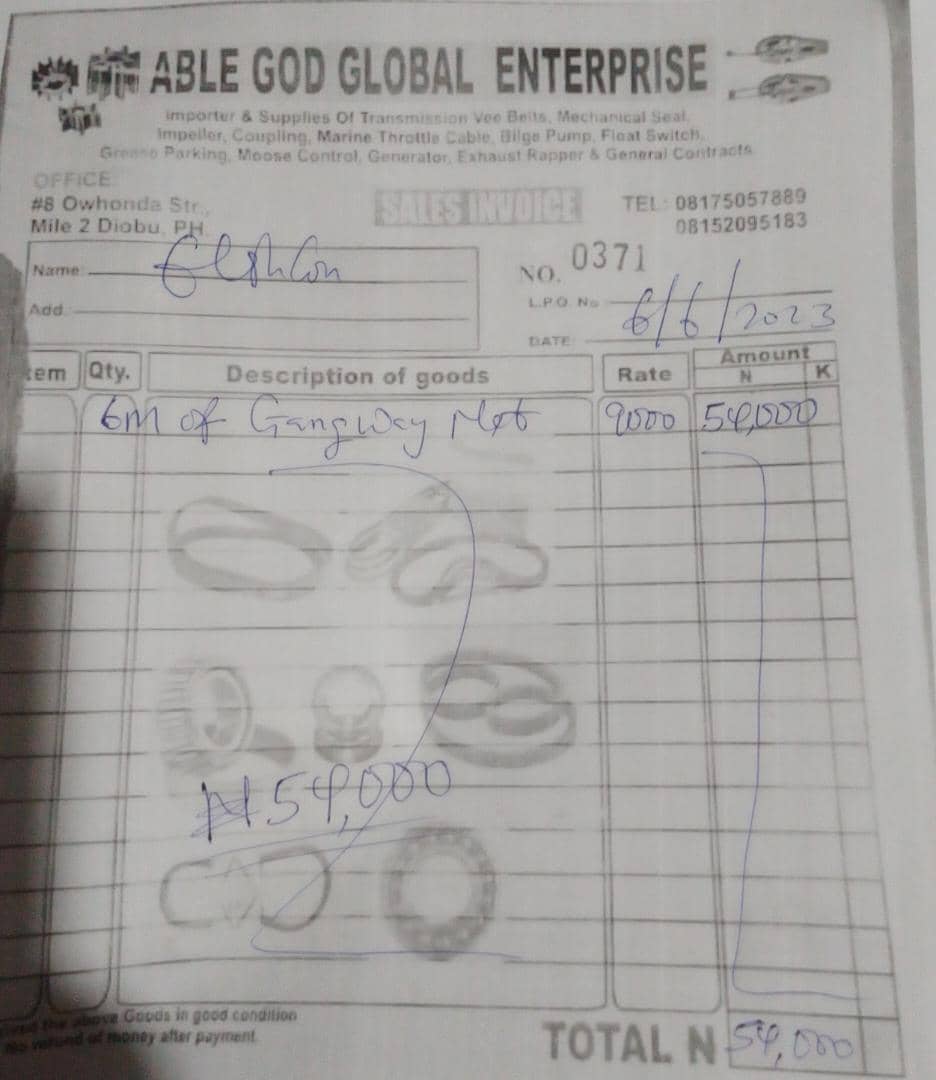 ABLE GOD GLOBAL ENTERPRISE
Importer & Supplies Of Transmission Vee Belts, Mechanical Seal,
Impeller, Coupling, Marine Throttle Cable, Bilge Pump, Float Switch,
Grease Parking, Moose Control, Generator, Exhaust Rapper & General Contracts
OFFICE
#8 Owhonda Str.,
Mile 2 Diobu, PH.
SALES INVOICE
TEL: 08175057889
08152095183
Name:
Add.
NO. 0371
L.P.O. No
DATE: 6/6/2023
tem Qty. Description of goods Rate Amount
N K
6M of Gangway Net 9000 54,000
₦54,000
the above Goods in good condition
No refund of money after payment.
TOTAL N 54,000